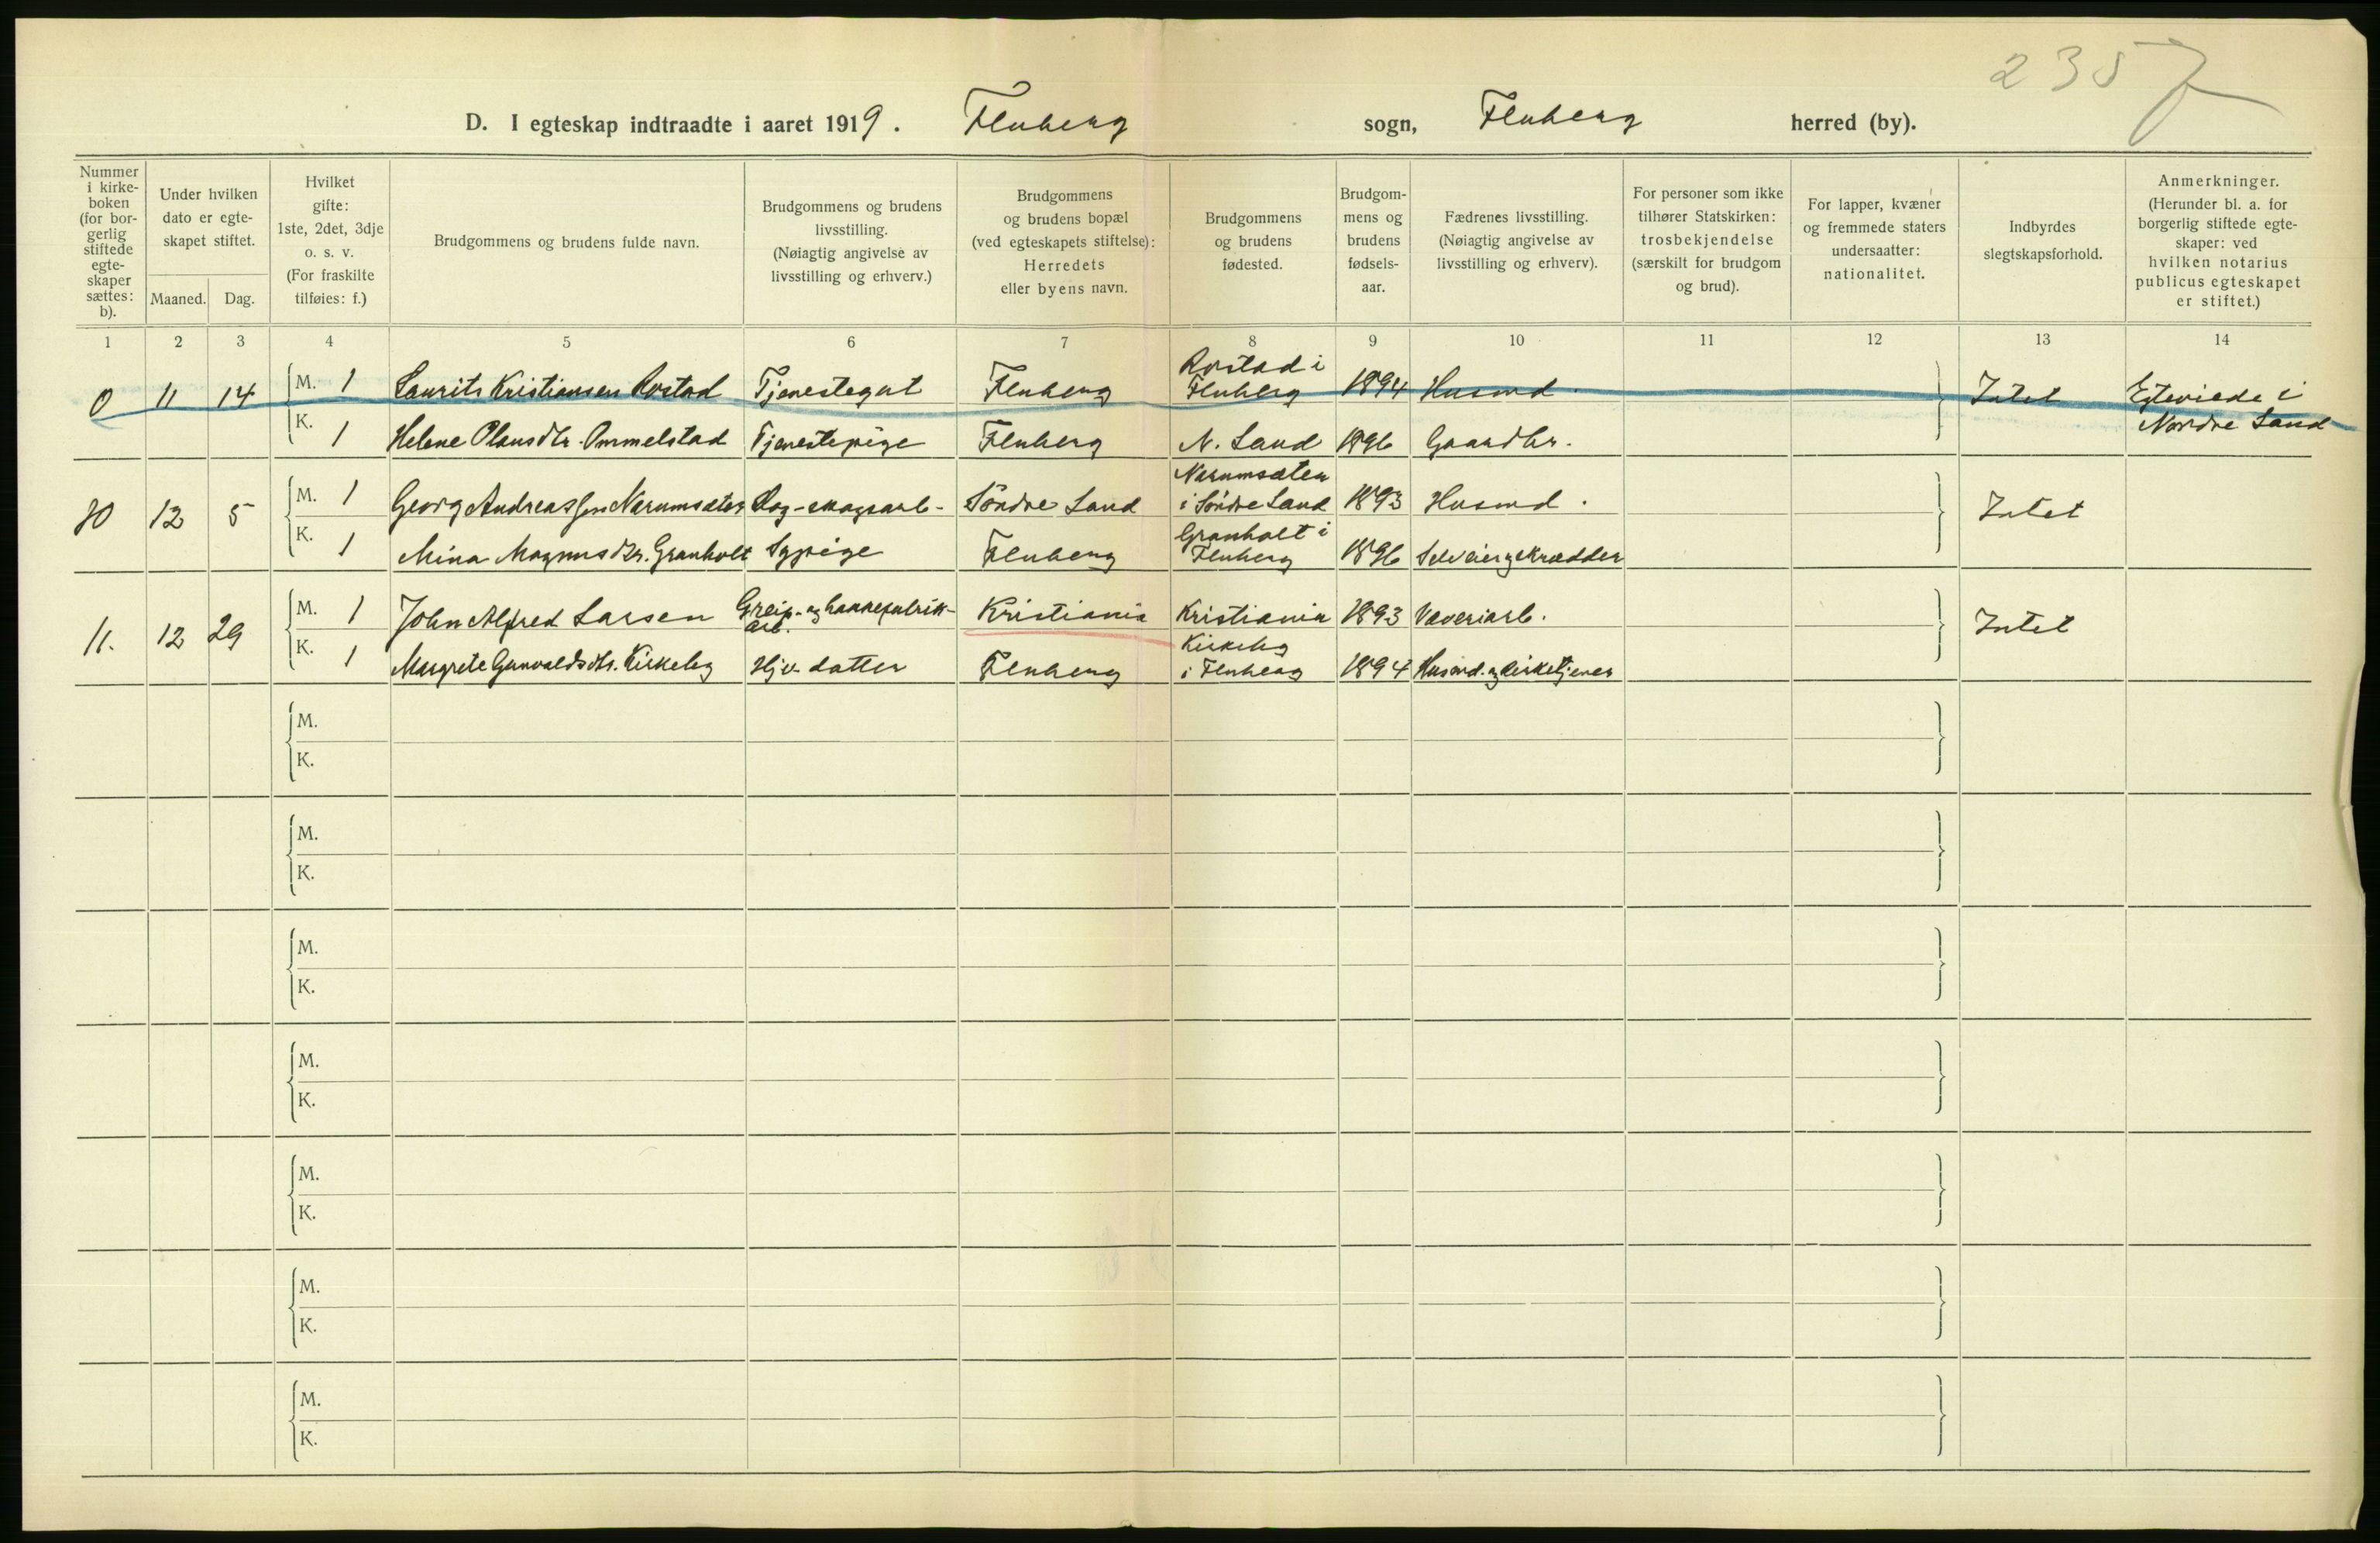 235
D. I egteskap indtraadte i aaret 1919. Fluberg sogn, Fluberg herred (by).
Nummer i kirke-boken (for bor-gerlig stiftede egte-skaper sættes: b).
Under hvilken dato er egte-skapet stiftet.
Maaned. Dag.
Hvilket gifte: 1ste, 2det, 3dje o. s. v. (For fraskilte tilføies: f.)
Brudgommens og brudens fulde navn.
Brudgommens og brudens livsstilling. (Nøiagtig angivelse av livsstilling og erhverv.)
Brudgommens og brudens bopæl (ved egteskapets stiftelse): Herredets eller byens navn.
Brudgommens og brudens fødested.
Brudgom-mens og brudens fødsels-aar.
Fædrenes livsstilling. (Nøiagtig angivelse av livsstilling og erhverv).
For personer som ikke tilhører Statskirken: trosbekjendelse (særskilt for brudgom og brud).
For lapper, kvæner og fremmede staters undersaatter: nationalitet.
Indbyrdes slegtskapsforhold.
Anmerkninger. (Herunder bl. a. for borgerlig stiftede egte-skaper: ved hvilken notarius publicus egteskapet er stiftet.)
1 2 3 4 5 6 7 8 9 10 11 12 13 14
0 11 14 M. 1 Laurits Kristiansen Rostad Tjenestegut Fluberg Rostad i Fluberg 1894 Husmd. Intet Egteviede i Nordre Land
K. 1 Helene Olausdtr. Ommelstad Tjenestepige Fluberg N. Land 1896 Gaardbr.
10 12 5 M. 1 Georg Andreassen Narumsæter Dag-skogsarb- Söndre Land Narumsæter i Söndre Land 1893 Husmd. Intet
K. 1 Mina Magnusdtr. Granholt Sypige Fluberg Granholt i Fluberg 1896 Selveier og skrædder
11. 12 29 M. 1 John Alfred Larsen Greip- og hakkefabrik-arb. Kristiania Kristiania 1893 Væveriarb. Intet
K. 1 Margrete Gunvaldsdtr. Kirkeby Hjv. datter Fluberg Kirkeby i Fluberg 1894 Husmd. og kirketjener
M.
K.
M.
K.
M.
K.
M.
K.
M.
K.
M.
K.
M.
K.